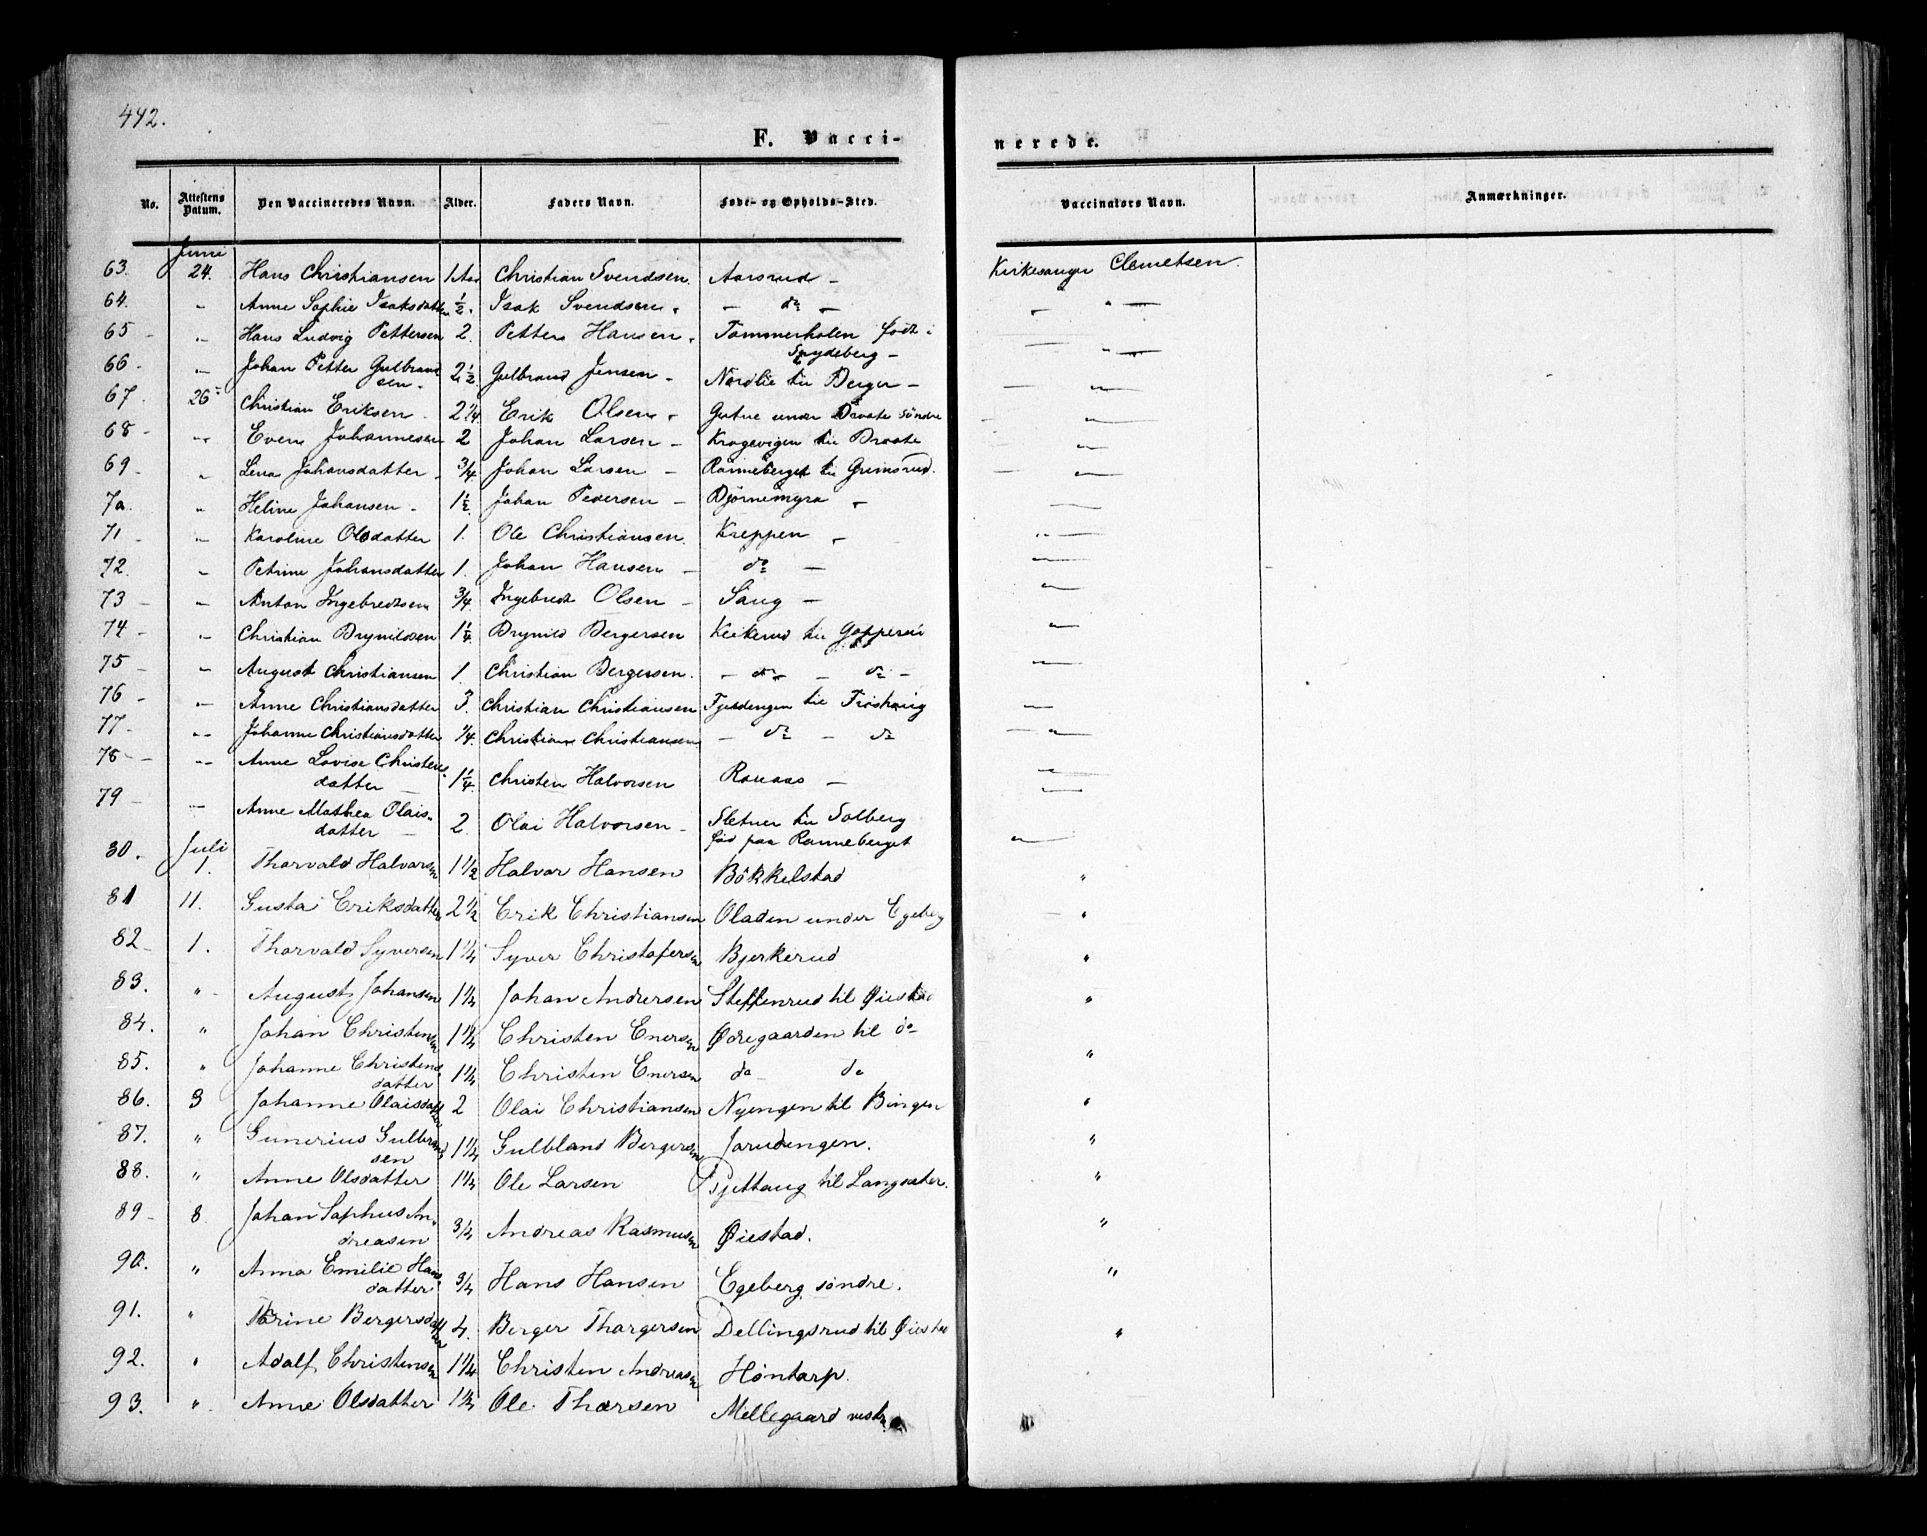 442.
F. Vacci-
nerede.
No. Attestens Datum. Den Vaccineredes Navn. Alder. Faders Navn. Føde- og Opholds-Sted. Vaccinators Navn. Anmærkninger.
Juni
63. 24. Hans Christiansen 1 Aar Christian Svendsen. Aarsrud – Kirkesanger Clemetsen.
64. " Anne Sophie Isaksdatter ½. Isak Svendsen. – do – "
65 – " Hans Ludvig Pettersen 2. Petter Hansen. Tømmerholen født i
Spydeberg – "
66 – " Johan Petter Gulbrand
sen. 2½. Gulbrand Jensen – Nordlie til Berger – "
67. 26 Christian Eriksen. 2¼ Erik Olsen. under Braate søndre "
68 – " Even Johannesen 2 Johan Larsen – Kragevigen til Braate "
69 – " Lena Johansdatter. ¾ Johan Larsen – Ranneberget til Grimsrud. "
70. " Heline Johansen. 1½. Johan Pedersen – Bjørnemyra – "
71 – " Karoline Olsdatter 1. Ole Christiansen. Kreppen – "
72. " Petrine Johansdatter 1. Johan Hansen – do – "
73 – " Anton Ingebredtsen ¾. Ingebredt Olsen – Saug – "
74 – " Christian Brynildsen 1¼. Brynild Bergersen Kirkerud til "
75 – " August Christiansen 1. Christian Bergersen. – do – do – "
76 – " Anne Christiansdatter 3. Christian Christiansen Fjeldengen til Frøshaug "
77 – " Johanne Christiansdatter ¼. Christian Christiansen – do – do "
78 – " Anne Lovise Christens
datter – 1¼. Christen Halvorsen Ranaas – "
79 – " Anne Mathea Olais-
datter – 2. Olai Halvorsen – Sletner til Solberg
fød paa Ranneberget "
Juli
80. 1. Thorvald Halvorsen 1½ Halvor Hansen Bökkelstad "
81 11. Gusta Eriksdatter 2½ Erik Christiansen Oladen under Egeberg "
82 – 1. Thorvald Syversen 1¼ Syver Christofersen Bjerkerud "
83. " August Johansen 1¼ Johan Andersen Steffenrud til Øiestad "
84. " Johan Christensen 1¼ Christen Enersen Ødegaarden til do
85. " Johanne Christens
datter 1¼ Christen Enersen do do "
86. 3 Johanne Olaisdatter 2 Olai Christiansen Nyengen til Bingen "
87. " Gunerius Gulbrand
sen 1¼ Gulbland Bergersen Jorudengen. "
88. " Anne Olsdatter 1¼ Ole Larsen Pjuttaug til Langsæter. "
89 – 8 Johan Sophus An-
dreasen ¾ Andreas Rasmusen Øiestad. "
90. " Anna Emilie Hans
datter ¾ Hans Hansen Egeberg søndre. "
91. " Thrine Bergersdatter 4. Berger Thorgersen Dellingsrud til Øiestad "
92. " Adolf Christensen 1¼ Christen Andreasen Høntorp.
93. " Anne Olsdatter 1¼ Ole Thorsen Mellegaard vestr.